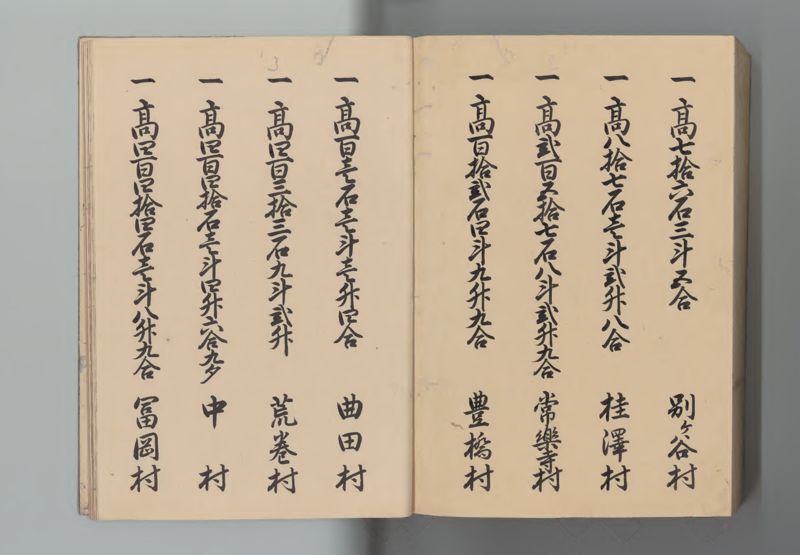 一高七拾六石三斗五合 別ヶ谷村
一高八拾七石壱斗弐升八合 桂澤村
一高弐百五拾七石八斗弐升九合 常樂寺村
一高百拾弐石四斗九升九合 豊橋村
一高百壱石壱斗壱升四合 曲田村
一高四百三拾三石九斗弐升 荒巻村
一高四百四拾石壱斗四升六合九夕 中村
一高四百四拾四石壱斗八升九合 冨岡村